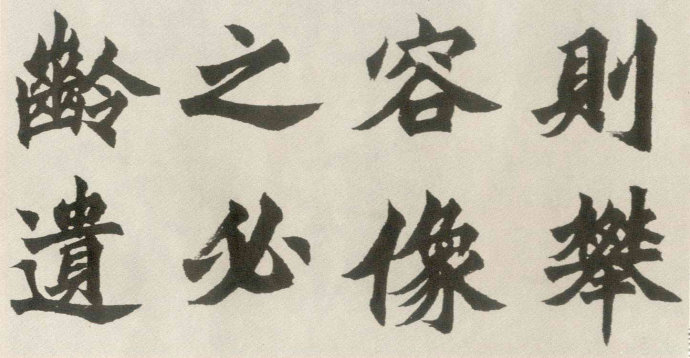 則攀
容像
之必
齡遺